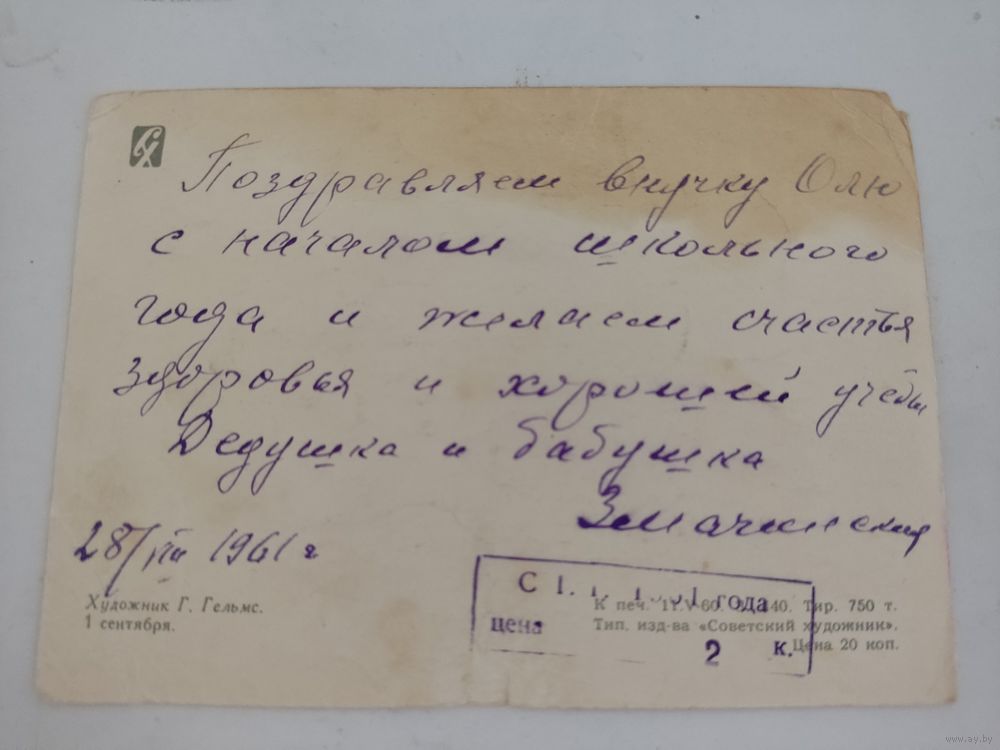 Поздравляем внучку Олю
с началом школьного
года и желаем счастья
здоровья и хорошей учебы
Дедушка и бабушка
28/VIII 1961 г
Художник Г. Гельмс.
1 сентября.
С 1. 1. 1961 года
цена
2 к.
К печ. 11.V-60. Тир. 750 т.
Тип. изд-ва «Советский художник».
Цена 20 коп.
www.ay.by